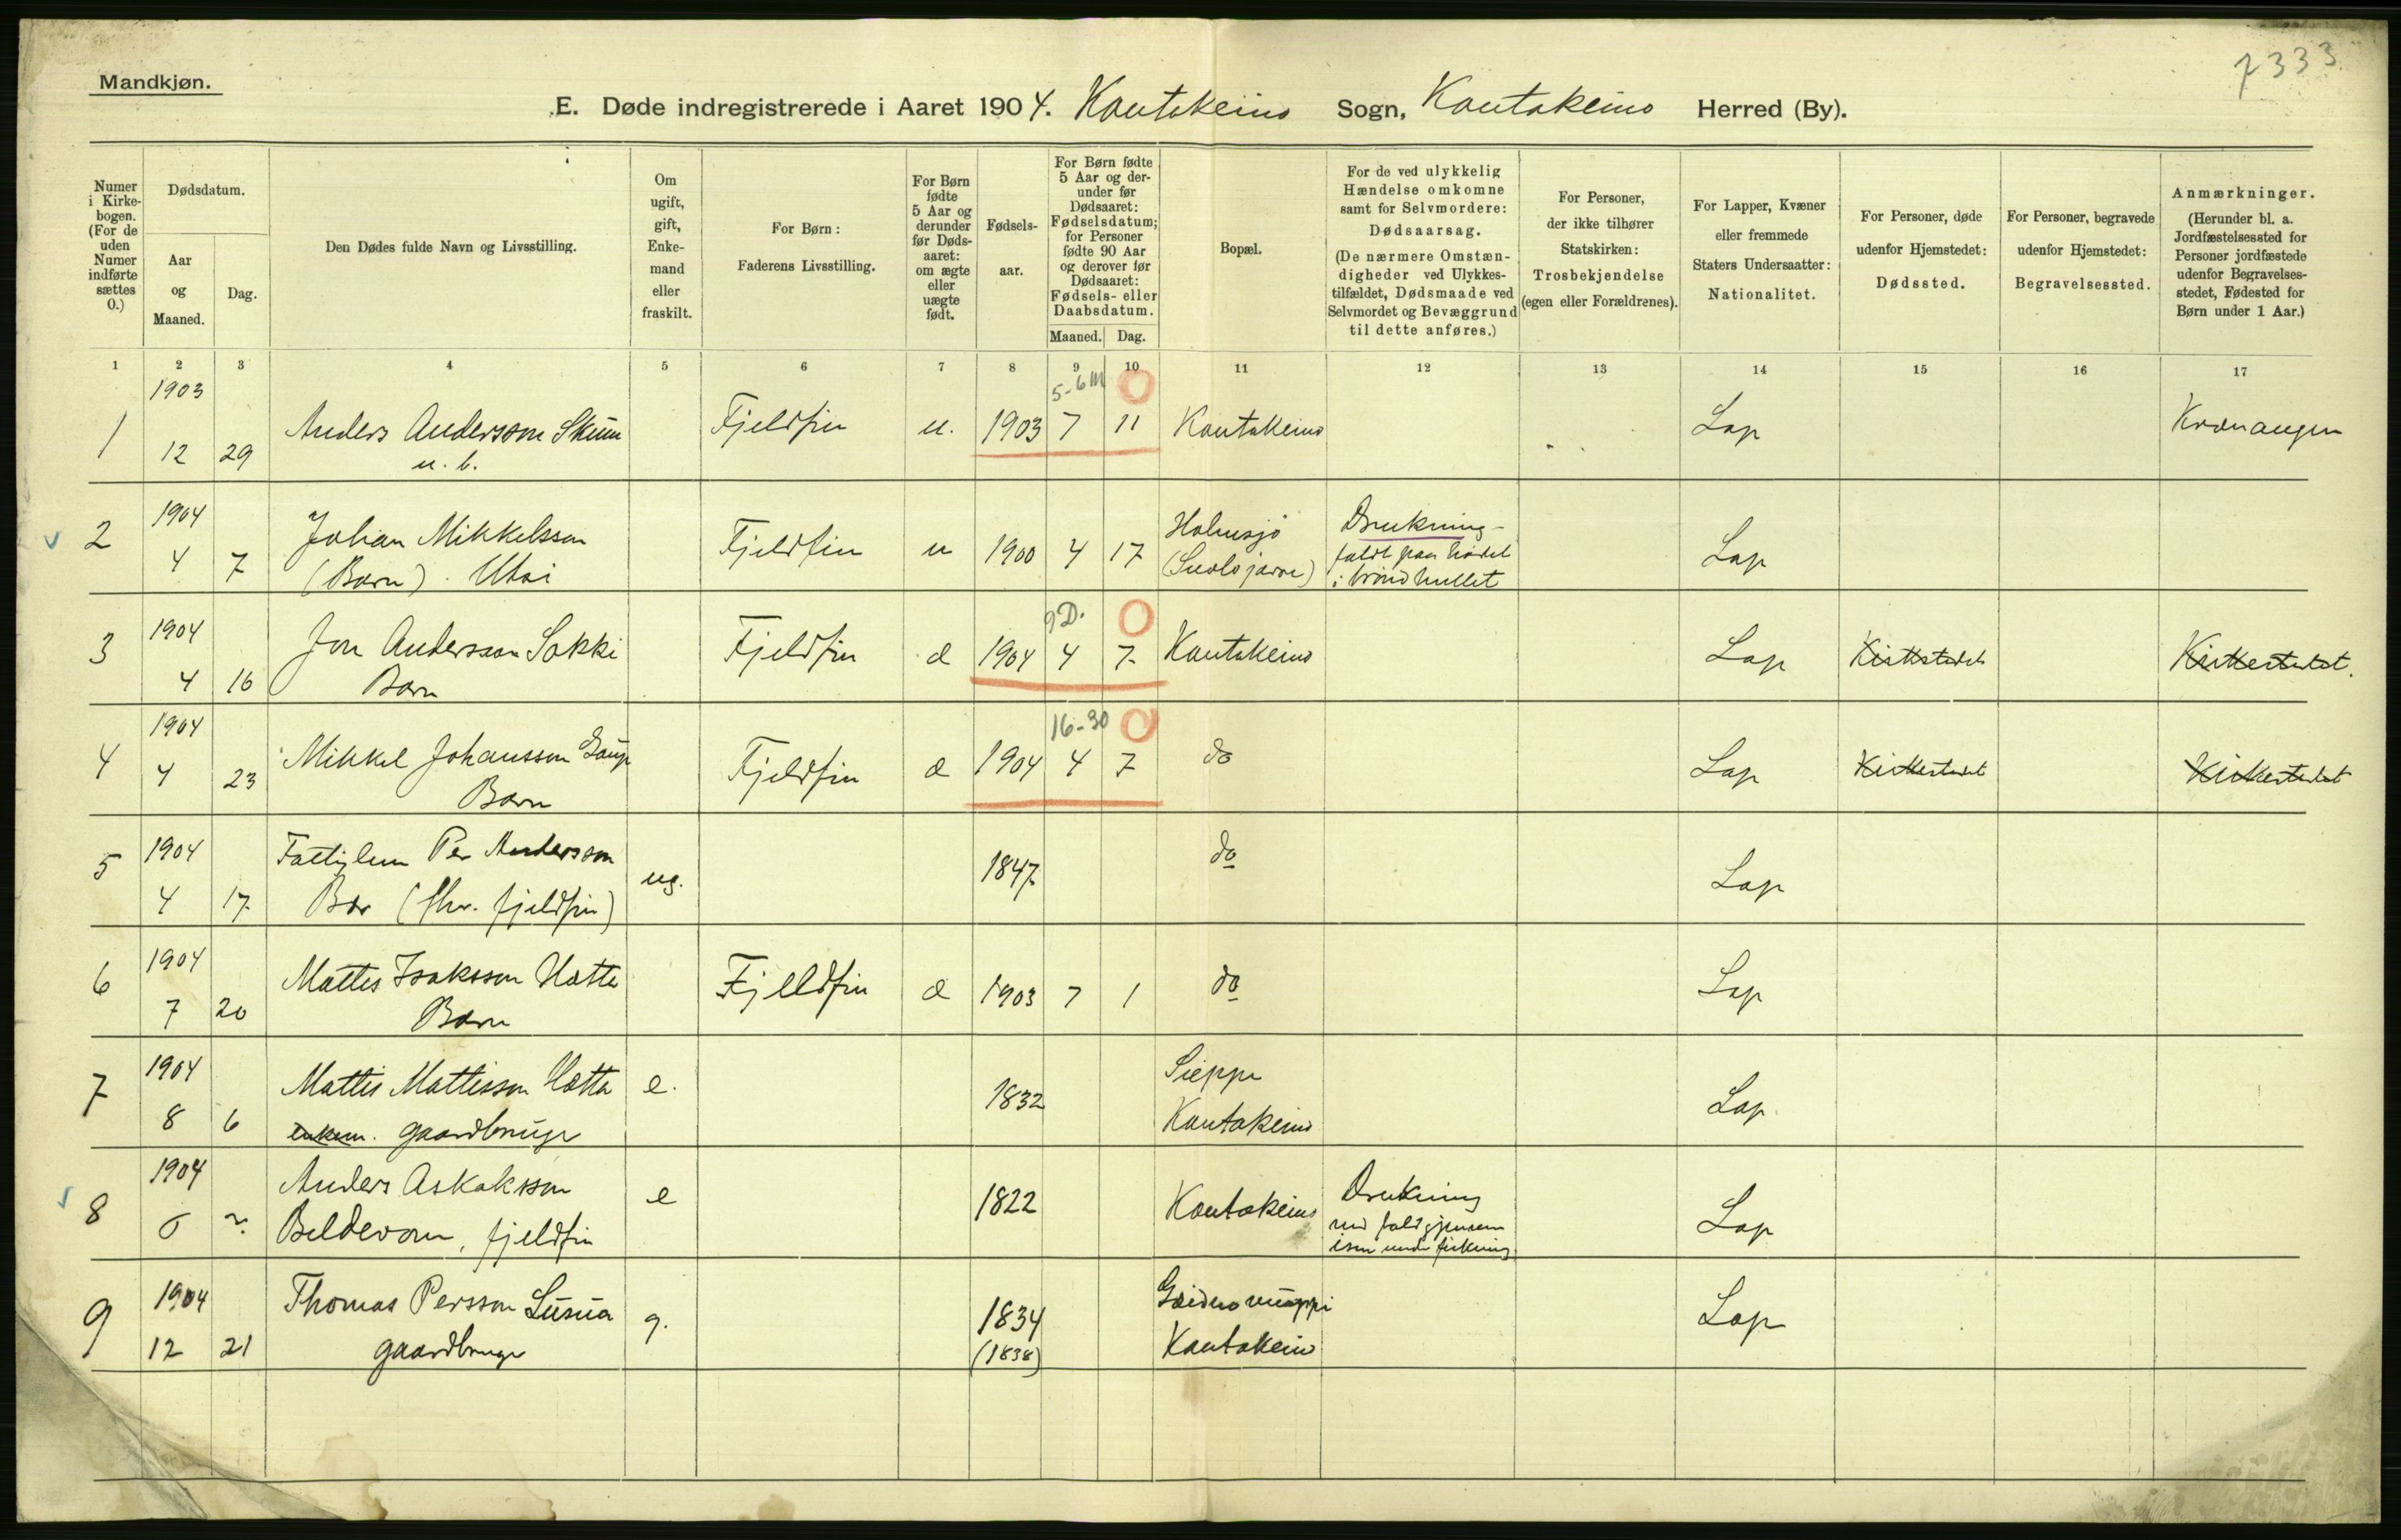 7333
Mandkjøn.
E. Døde indregistrerede i Aaret 1904. Kautokeino Sogn, Kautokeino Herred (By).
Numer i Kirkebogen. (For de uden Numer indførte sættes 0.)
Dødsdatum.
Aar og Maaned.
Dag.
Den Dødes fulde Navn og Livsstilling.
Om ugift, gift, Enkemand eller fraskilt.
For Børn: Faderens Livsstilling.
For Børn fødte 5 Aar og derunder før Dødsaaret: om ægte eller uægte født.
Fødselsaar.
For Børn fødte 5 Aar og derunder før Dødsaaret: Fødselsdatum; for Personer fødte 90 Aar og derover før Dødsaaret: Fødsels- eller Daabsdatum.
Maaned. Dag.
Bopæl.
For de ved ulykkelig Hændelse omkomne samt for Selvmordere: Dødsaarsag. (De nærmere Omstændigheder ved Ulykkestilfældet, Dødsmaade ved Selvmordet og Bevæggrund til dette anføres.)
For Personer, der ikke tilhører Statskirken: Trosbekjendelse (egen eller Forældrenes).
For Lapper, Kvæner eller fremmede Staters Undersaatter: Nationalitet.
For Personer, døde udenfor Hjemstedet: Dødssted.
For Personer, begravede udenfor Hjemstedet: Begravelsessted.
Anmærkninger. (Herunder bl. a. Jordfæstelsessted for Personer jordfæstede udenfor Begravelsesstedet, Fødested for Børn under 1 Aar.)
1 2 3 4 5 6 7 8 9 10 11 12 13 14 15 16 17
1903 5-6 M
1 12 29 Anders Andersson Skum Fjeldfin u. 1903 7 11 Kautokeino Lap Kvænangen
u. b.
1904
2 4 7 Johan Mikkelsson Fjeldfin u 1900 4 17 Lap
(Barn). Utsi
Drukning-
faldt paa hodet
i brøndhullet
1904 9D.
3 4 16 Jon Andersson Sokki Fjeldfin æ 1904 4 7 Kautokeino Lap Kirkestedet Kirkestedet.
Barn
1904 16-30
4 4 23 Mikkel Johansson Gaup Fjeldfin æ 1904 4 7 do Lap Kirkestedet Kirkestedet
Barn
1904
5 4 17 Fattiglem Per Andersson ug. 1847 do Lap
(fhv. fjeldfin)
1904
6 7 20 Mattis Isaksson Hætta Fjeldfin æ 1903 7 1 do Lap
Barn
1904
7 8 6 Mattis Mattisson Hætta e. 1832 Sieppe Lap
enkem. gaardbruger Kautokeino
1904
8 6 ? Anders Askaksson e 1822 Kautokeino Lap
fjeldfin
Drukning
ved fald gjennem
isen under fiskning
1904
9 12 21 Thomas Persson g. 1834 Lap
gaardbruger (1838) Kautokeino